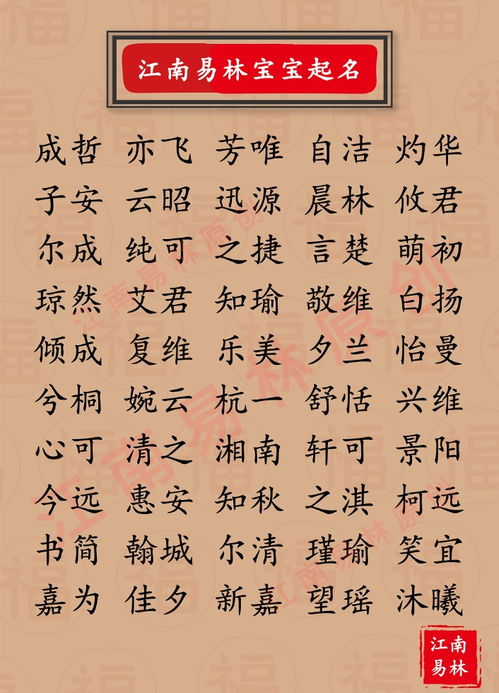 江南易林宝宝起名
成哲 亦飞 芳唯 自洁 灼华
子安 云昭 迅源 晨林 攸君
尔成 纯可 之捷 言楚 萌初
琼然 艾君 知瑜 敬维 白扬
倾成 复维 乐美 夕兰 怡曼
兮桐 婉云 杭一 舒恬 兴维
心可 清之 湘南 轩可 景阳
今远 惠安 知秋 之淇 柯远
书简 翰城 尔清 瑾瑜 笑宜
嘉为 佳夕 新嘉 望瑶 沐曦
江南易林原创
江南易林原创
江南易林原创
江南
易林